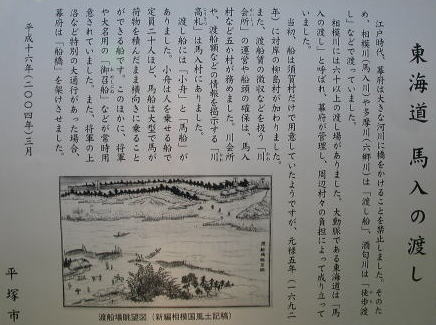 東海道 馬入の渡し
江戸時代、幕府は大きな河川に橋をかけることを禁止しました。そのた
め、相模川(馬入川)や多摩川(六郷川)は「渡し船」、酒匂川は「徒歩渡
し」などで渡っていました。
相模川には六十以上の渡し場がありました。大動脈である東海道は「馬
入の渡し」と呼ばれ、幕府が管理し、周辺村々の負担によって成り立って
いました。
当初、船は須賀村だけで用意していたようですが、元禄五年(一六九二
年)に対岸の柳島村が加わりました。
また、渡船賃の徴収などを扱う「川
会所」の運営や船頭の確保は、馬入
村など五か村が務めました。川会所
や、渡船賃などの情報を掲示する「川
高札」は馬入村にありました。
渡し船には「小舟」と「馬船」が
ありました。小舟は人を乗せる船で
定員二十人ほど、馬船は大型で馬が
荷物を積んだまま横向きに乗ること
ができる船です。このほかに、将軍
や大名用の「御召船」などが常時用
意されていました。また、将軍の上
洛など特別の大通行があった場合、
幕府は「船橋」を架けさせました。
平成十六年(二〇〇四年)三月
平塚市
渡船場眺望図(新編相模国風土記稿)